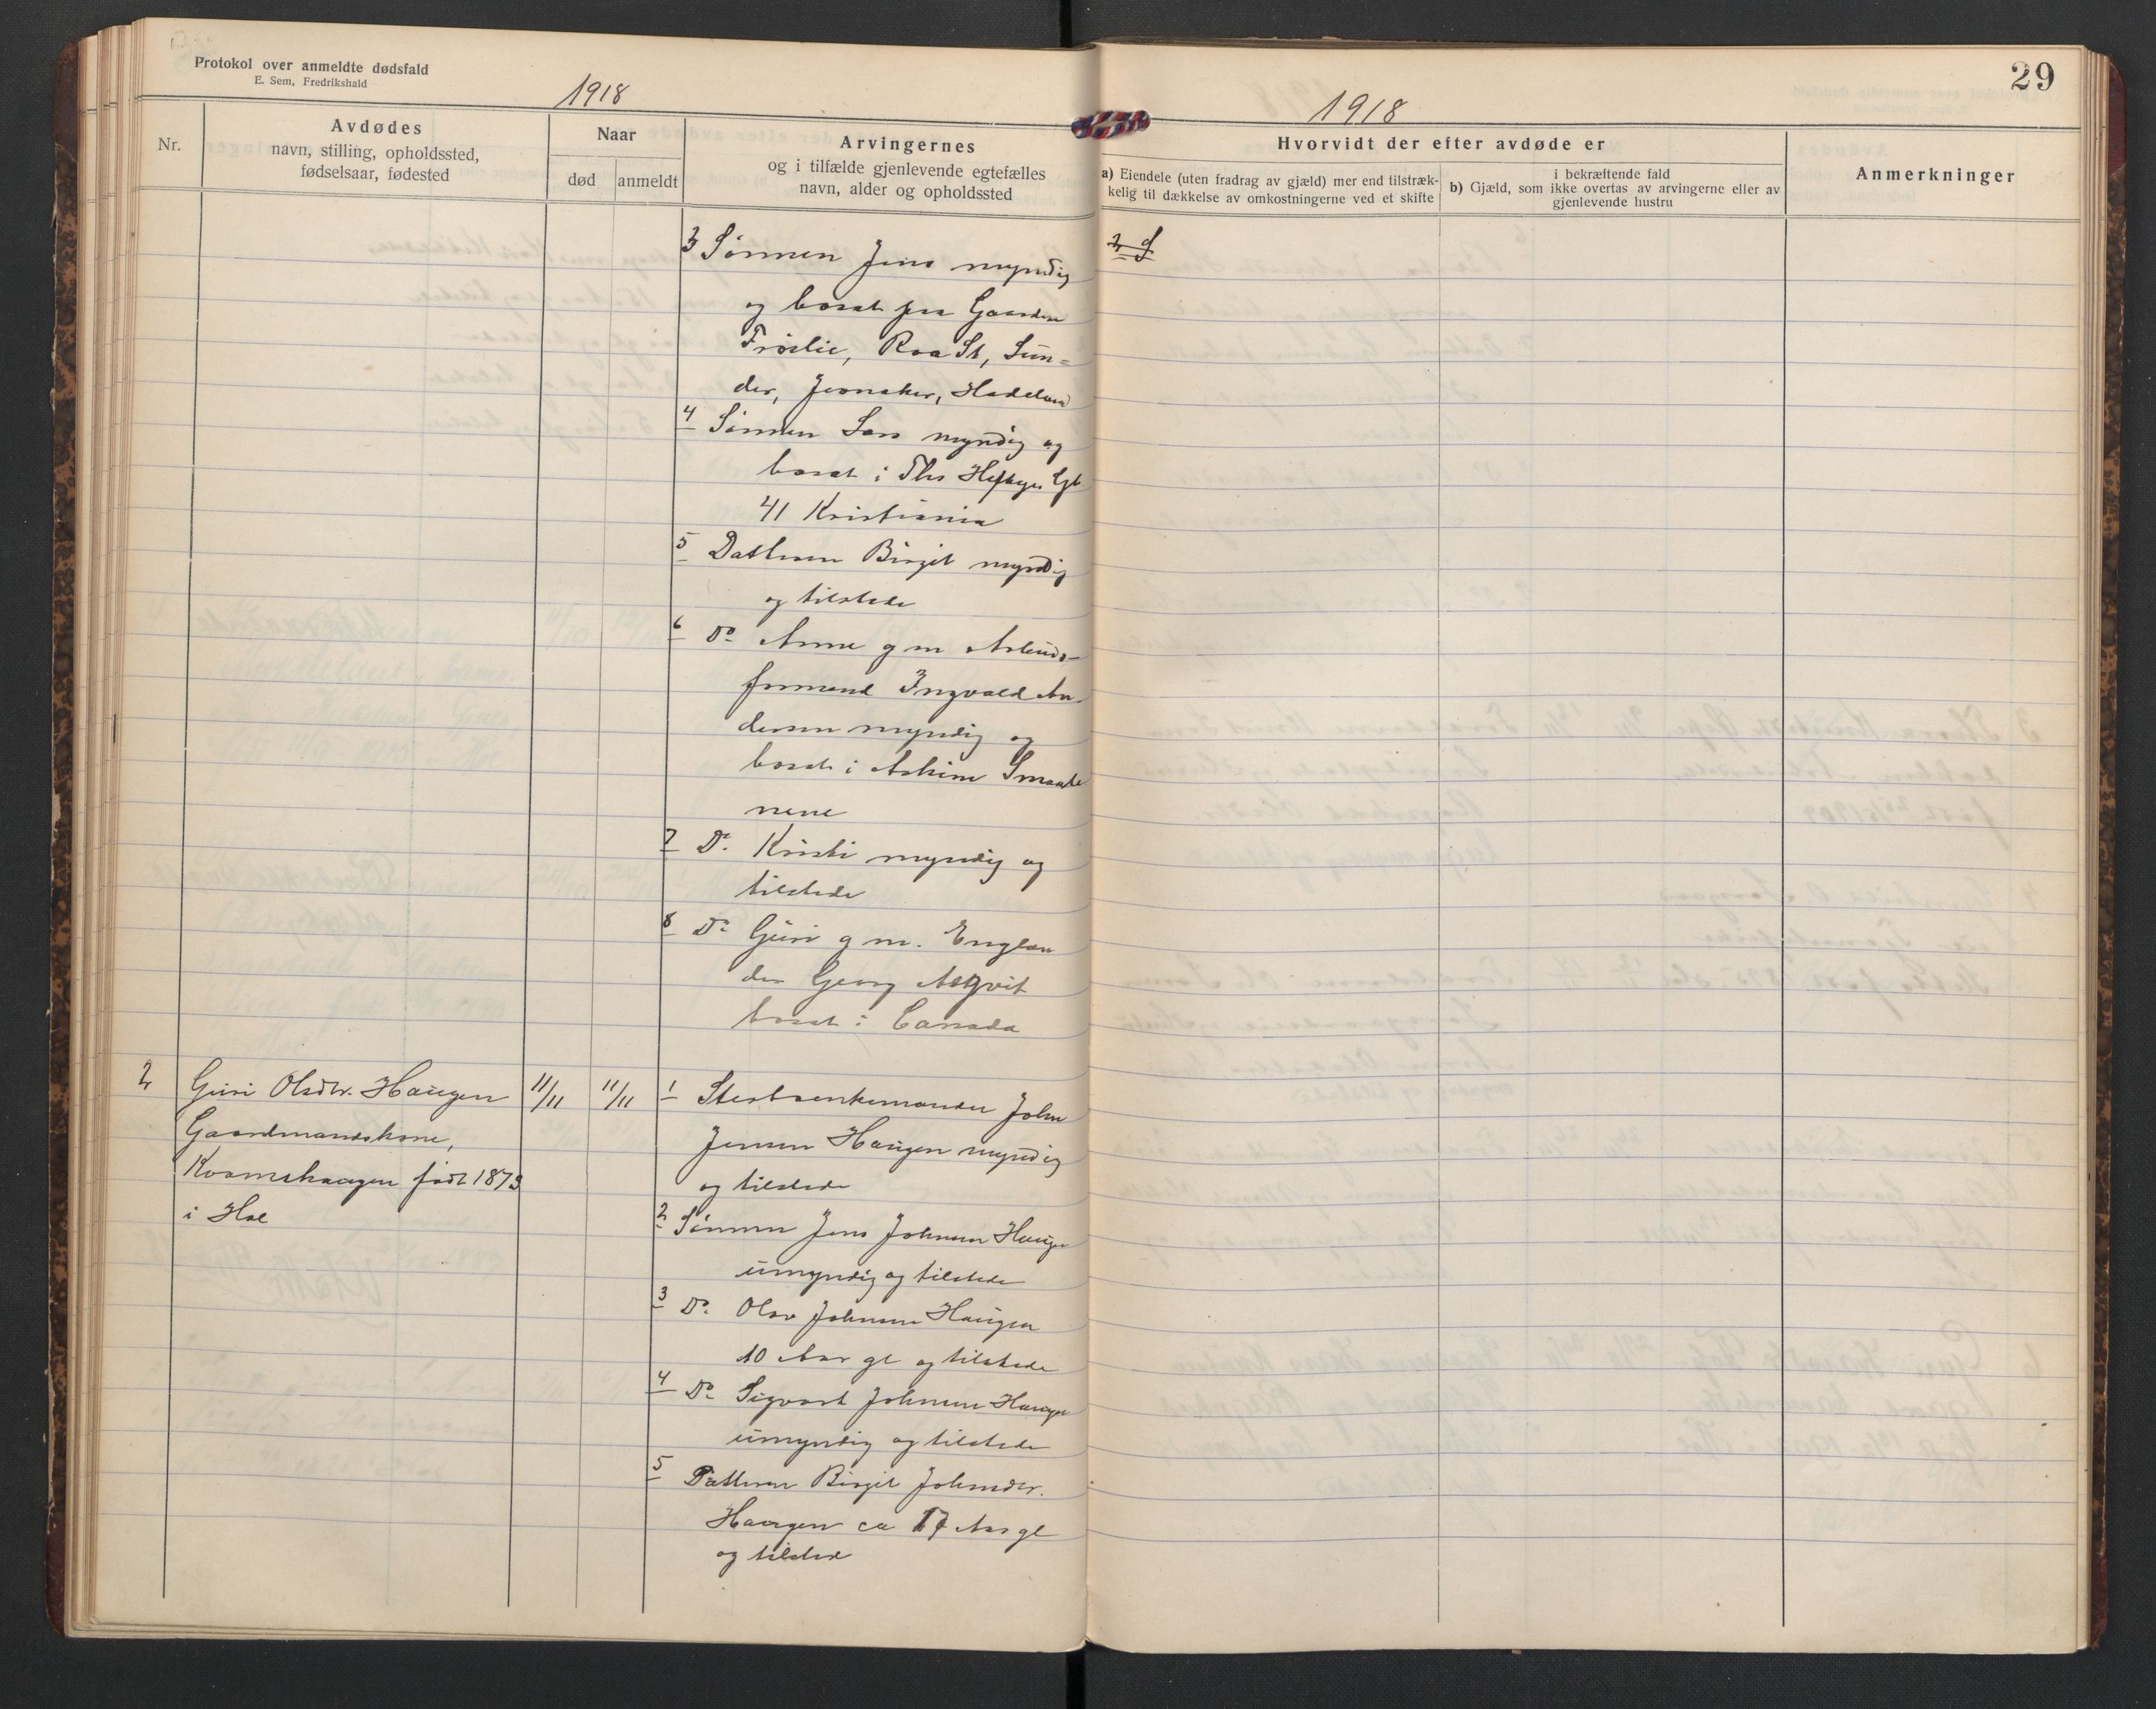 Protokol over anmeldte dødsfald
E. Sem, Fredrikshald
1918
Nr.
Avdødes
navn, stilling, opholdssted,
fødselsaar, fødested
Naar
død
anmeldt
Arvingernes
og i tilfælde gjenlevende egtefælles
navn, alder og opholdssted
3 Sönnen Jens myndig
og bosat paa Gaarden
Fröslie, Roa St, Lun-
der, Jevnaker, Hadeland
4 Sönnen Lars myndig og
bosat i Ths Heftyes Gt
41 Kristiania
5 Datteren Birgit myndig
og tilstede
6 Do Anne g m Arbeids-
formand Ingvald An-
dersen myndig og
bosat i Askim Smaale
nene
7 Do. Kristi myndig og
tilstede
8 Do Guri g m. Englæn
der Georg Asqvit
bosat i Canada
2 Guri Olsdtr. Haugen
Gaardmandskone,
født 1873
i Hol
11/11
11/11
1 John
Jensen Haugen myndig
og tilstede
2 Sönnen Jens Johnsen Haugen
umyndig og tilstede
3 Do. Olav Johnsen Haugen
10 Aar gl og tilstede
4 Do Sigvart Johnsen Haugen
umyndig og tilstede
5 Datteren Birgit Johnsdtr.
Haugen ca 17 Aar gl
og tilstede
29
1918
Hvorvidt der efter avdøde er
a) Eiendele (uten fradrag av gjæld) mer end tilstræk-
kelig til dækkelse av omkostningerne ved et skifte
i bekræftende fald
b) Gjæld, som ikke overtas av arvingerne eller av
gjenlevende hustru
Anmerkninger